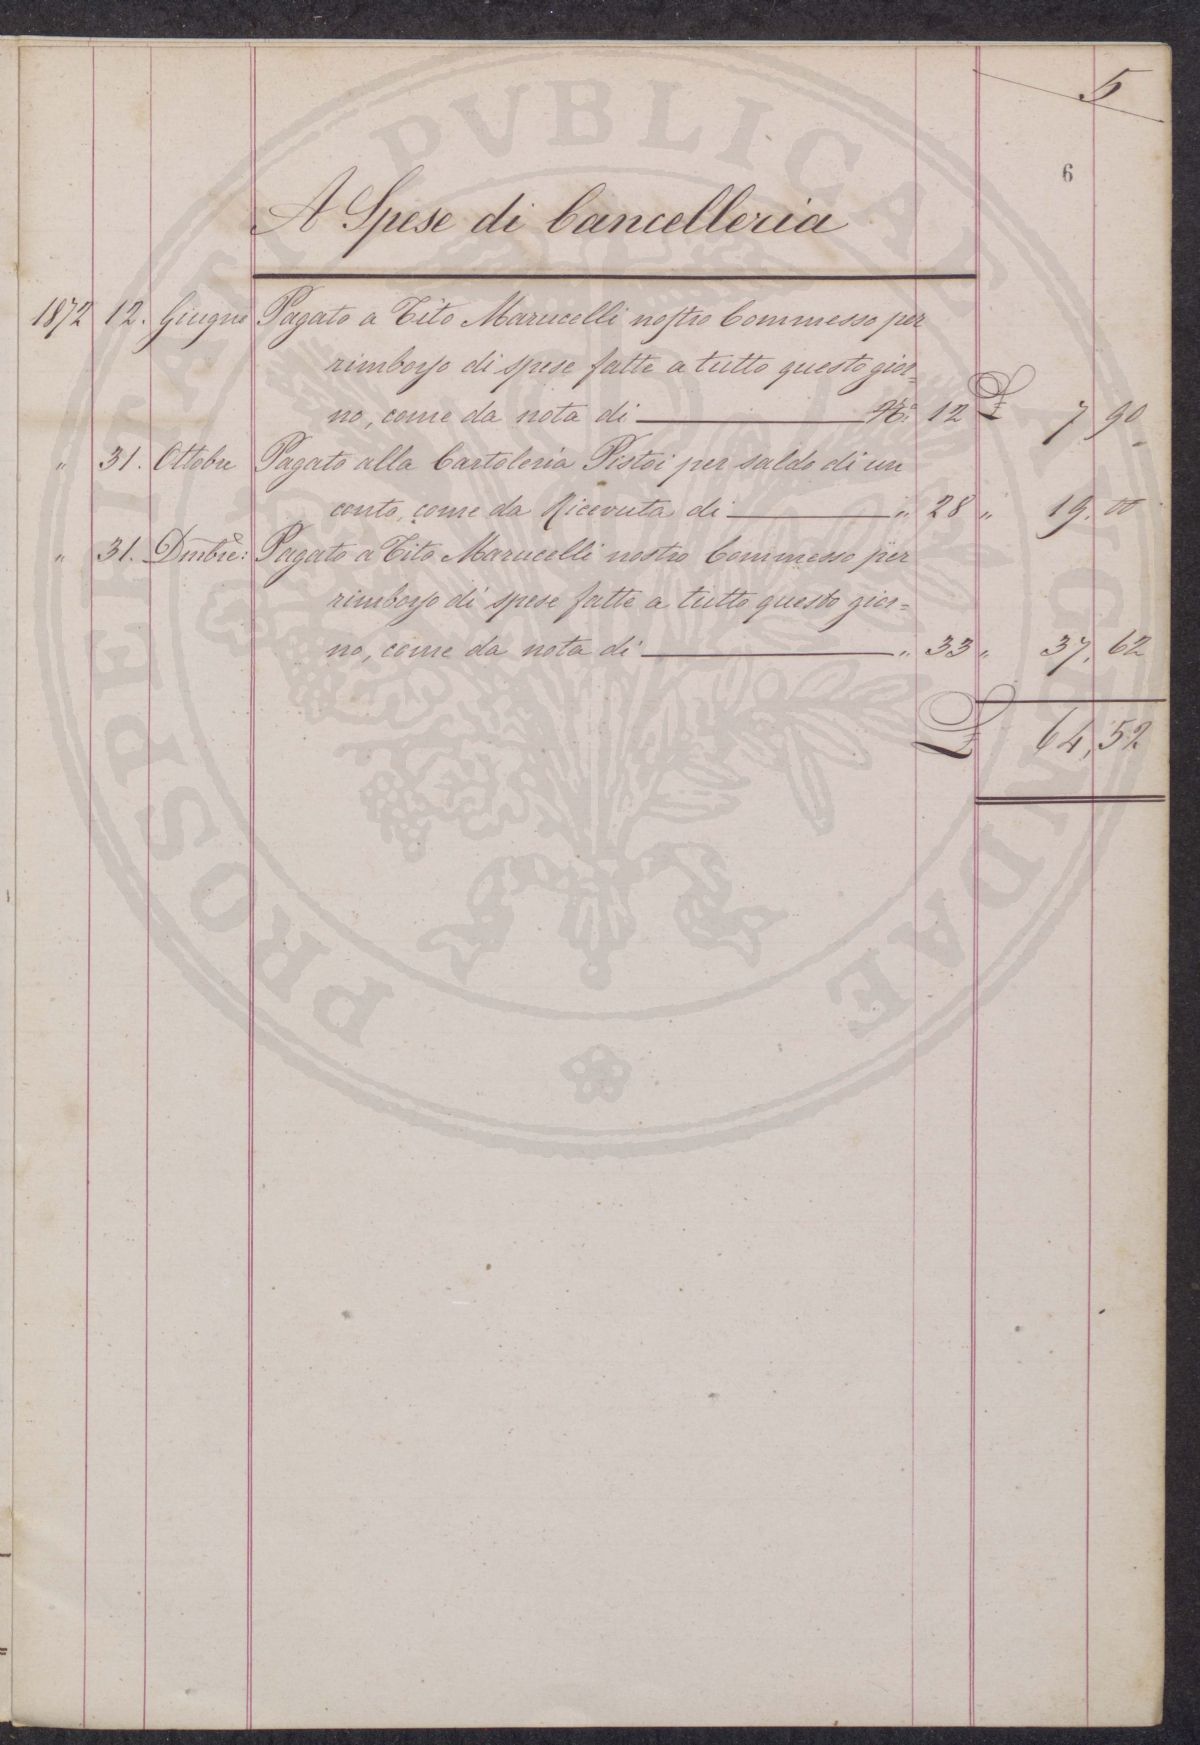 5
6
A Spese di Cancelleria
1872 12. Giugno Pagato a Tito Marucelli nostro Commesso per
rimborso di spese fatte a tutto questo gior=
no, come da nota di N.° 12 £ 7 90
" 31. Ottobre Pagato alla Cartoleria Pistoi per saldo di un
conto, come da Ricevuta di " 28 " 19. 00
" 31. Dmbre: Pagato a Tito Marucelli nostro Commesso per
rimborso di spese fatte a tutto questo gior=
no, come da nota di " 33 " 37. 62
£ 64, 52
PROSPERITATI PVBLICAE AVGENDAE